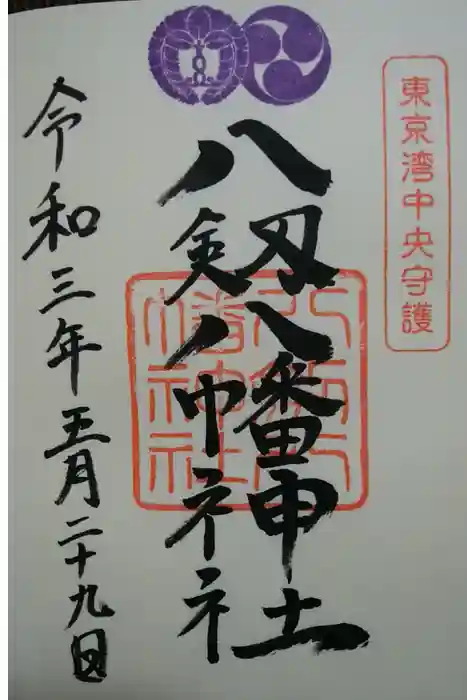 東京湾中央守護
八剱八幡神社
八剱八
幡神社
令和三年五月二十九日